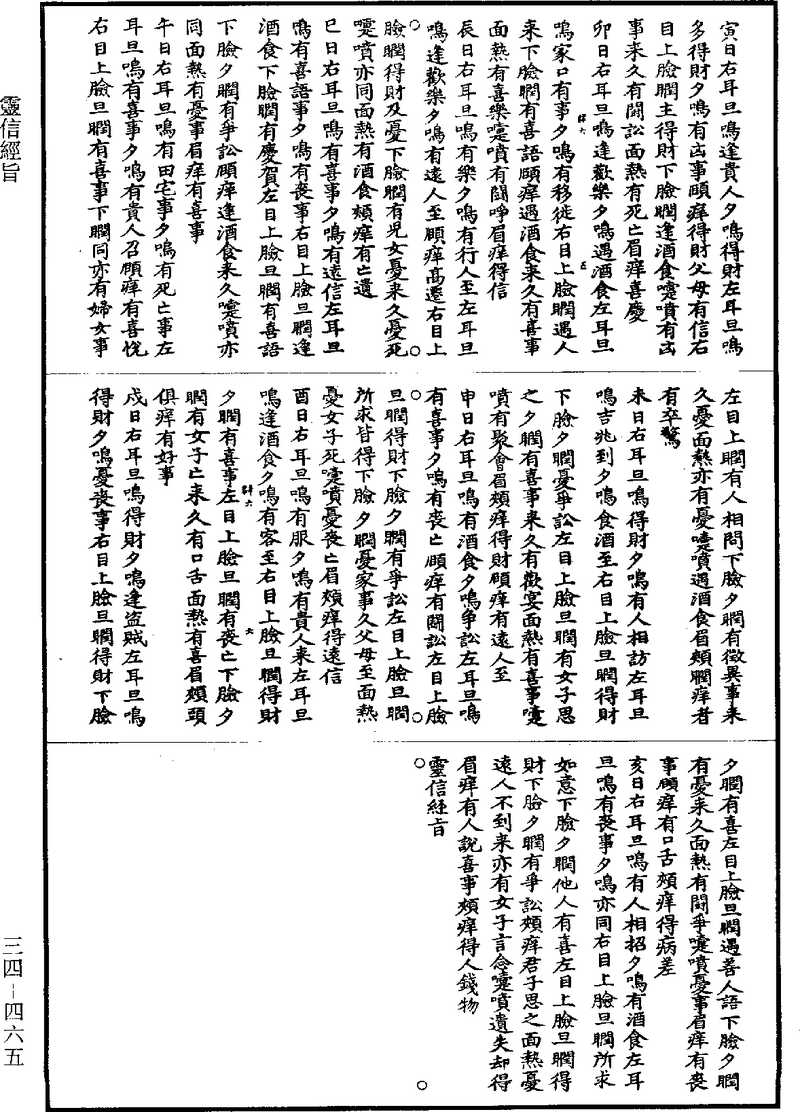 寅日右耳旦鳴逢貴人夕鳴得財左耳旦鳴
多得財夕鳴有凶事頤痒得財父母有信右
目上臉瞤主得財下臉瞤逢酒食嚏噴有凶
事来久有鬪訟面熱有死亡眉痒喜慶
卯日右耳旦鳴逢歡樂夕鳴遇酒食左耳旦
鳴家口有事夕鳴有移徙右目上臉瞤遇人
来下臉瞤有喜語頤痒遇酒食来久有喜事
面熱有喜樂嚏噴有鬪諍眉痒得信
辰日右耳旦鳴有樂夕鳴有行人至左耳旦
鳴逢歡樂夕鳴有遠人至頤痒高遷右目上
臉瞤得財及憂下臉瞤有児女憂来久憂死
嚏噴亦同面熱有酒食頰痒有亡遺
巳日右耳旦鳴有喜事夕鳴有遠信左耳旦
鳴有喜語事夕鳴有喪事右目上臉旦瞤逢
酒食下臉瞤有慶賀左目上臉旦瞤有喜語
下臉夕瞤有爭訟頤痒逢酒食来久嚏噴亦
同面熱有憂事眉痒有喜事
午日右耳旦鳴有田宅事夕鳴有死亡事左
耳旦鳴有喜事夕鳴有貴人召頤痒有喜悅
右目上臉旦瞤有喜事下瞤同亦有婦女事
左目上瞤有人相問下臉夕瞤有徵異事来
久憂面熱亦有憂嚏噴遇酒食眉頰瞤痒者
有卒驚
未日右耳旦鳴得財夕鳴有人相訪左耳旦
鳴吉兆到夕鳴食酒至右目上臉旦瞤得財
下臉夕瞤憂爭訟左目上臉旦瞤有女子思
之夕瞤有喜事来久有歡宴面熱有喜事嚏
噴有聚會眉頰痒得財頤痒有遠人至
申日右耳旦鳴有酒食夕鳴爭訟左耳旦鳴
有喜事夕鳴有喪亡頤痒有鬪訟左目上臉
旦瞤得財下臉夕瞤有爭訟左目上臉旦瞤
所求皆得下臉夕瞤憂家事久父母至面熱
憂女子死嚏噴憂喪亡眉頰痒得遠信
酉日右耳旦鳴有服夕鳴有貴人来左耳旦
鳴逢酒食夕鳴有客至右目上臉旦瞤得財
夕瞤有喜事左目上臉旦瞤有喪亡下臉夕
瞤有女子亡来久有口舌面熱有喜眉頰頭
俱痒有好事
戌日右耳旦鳴得財夕鳴逢盜賊左耳旦鳴
得財夕鳴憂喪事右目上臉旦瞤得財下臉
夕瞤有喜左目上臉旦瞤遇善人語下臉夕瞤
有憂来久面熱有鬪爭嚏噴憂事眉痒有喪
事頤痒有口舌頰痒得病差
亥日右耳旦鳴有人相招夕鳴有酒食左耳
旦鳴有喪事夕鳴亦同右目上臉旦瞤所求
如意下臉夕瞤他人有喜左目上臉旦瞤得
財下臉夕瞤有爭訟頰痒君子思之面熱憂
遠人不到来亦有女子言念嚏噴遺失却得
眉痒有人說喜事頰痒得人錢物
靈信經旨
靈信經旨
三四-四六五